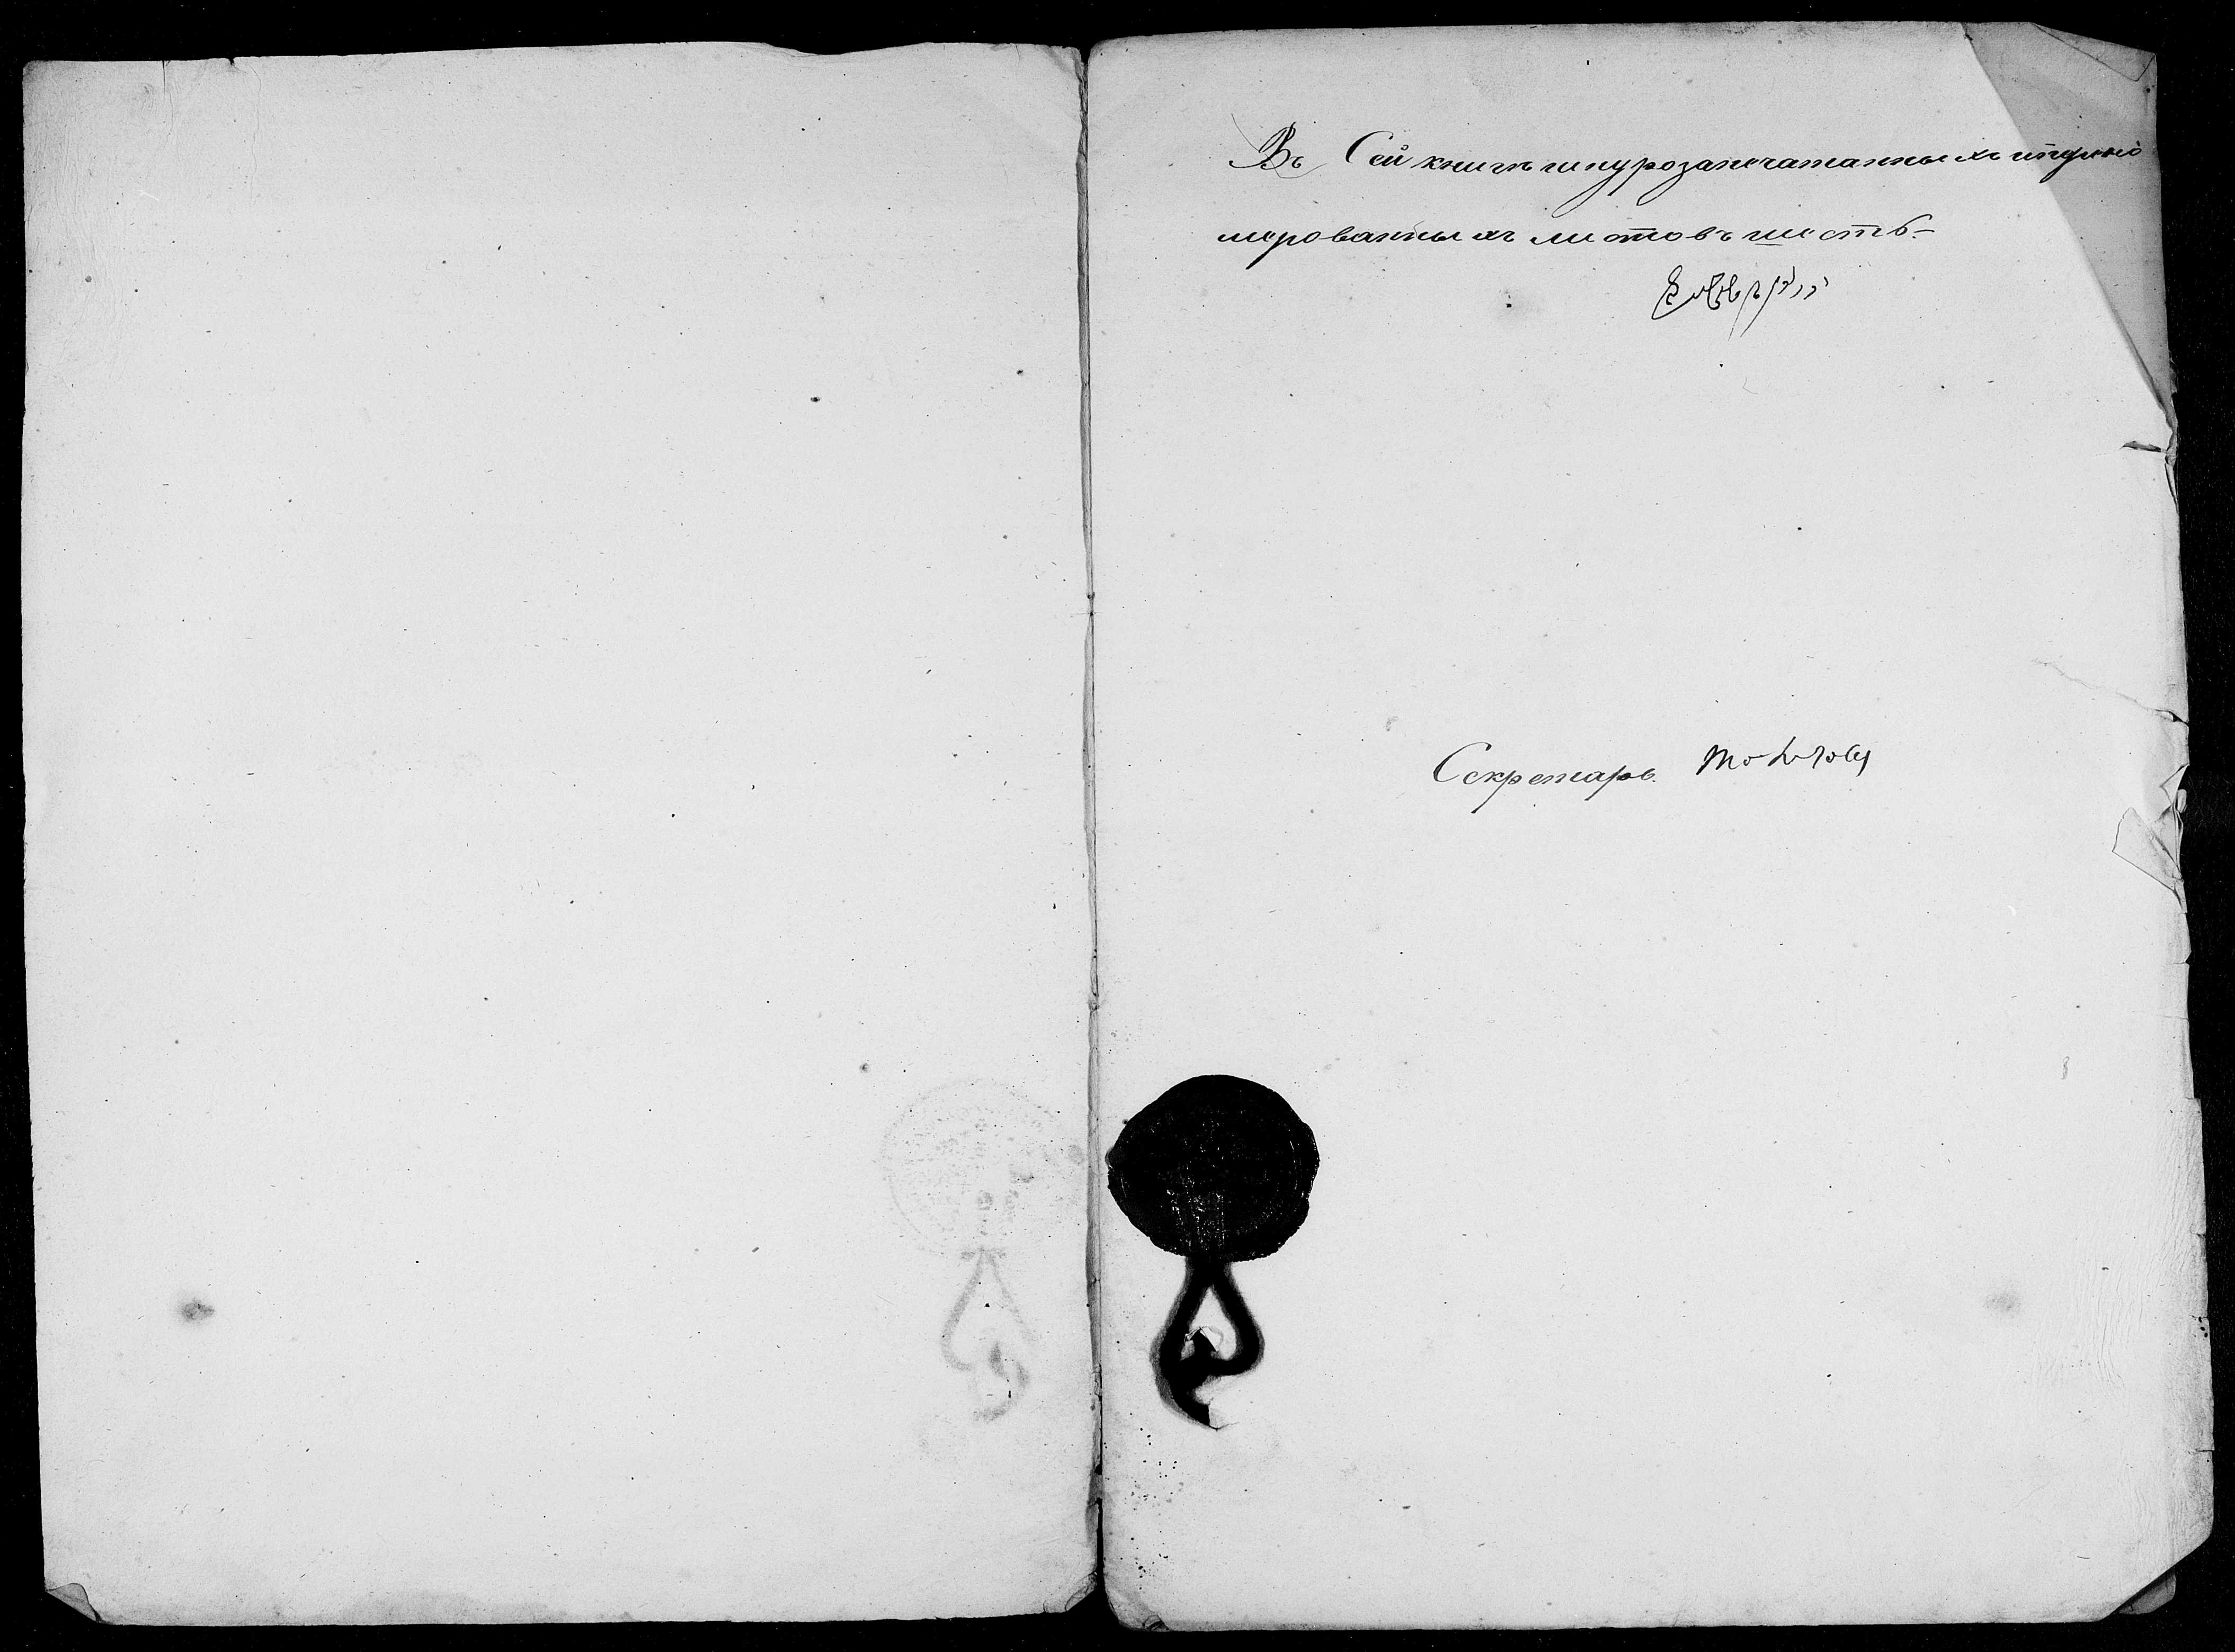 Въ Сей книгѣ шнурозапечатанныхъ и
мерованныхъ листовъ шесть.
Секретарь